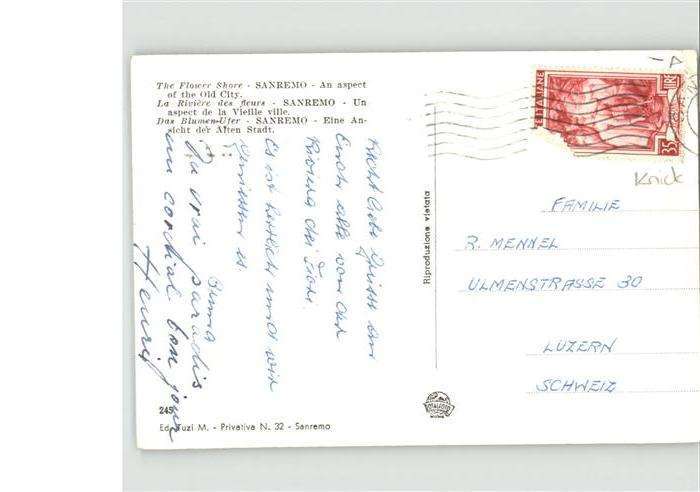 The Flower Shore - SANREMO - An aspect
of the Old City.
La Rivière des fleurs - SANREMO - Un
aspect de la Vieille ville.
Das Blumen-Ufer - SANREMO - Eine An-
sicht der Alten Stadt.
Recht liebe Grüsse an
Euch alle von der
Riviera dei Fiori.
Es ist herrlich und wir
geniessen es
Un vrai paradis
un cordial bon jour
Henri
Riproduzione vietata
ITALIANE
LIRE
35
Knick
FAMILIE
R. MENNEL
ULMENSTRASSE 30
LUZERN
SCHWEIZ
245
Ed. Zuzi M. - Privativa N. 32 - Sanremo